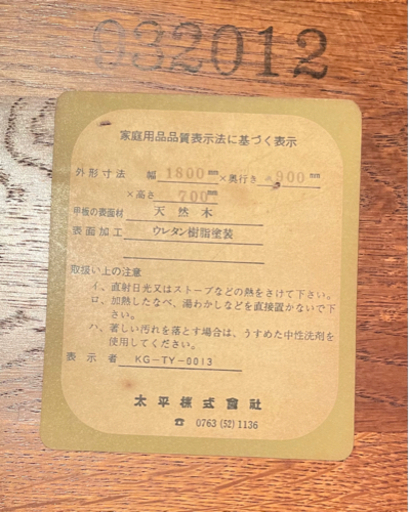 932012
家庭用品品質表示法に基づく表示
外形寸法 幅 1800mm×奥行き 900mm
×高さ 700mm
甲板の表面材 天然木
表面加工 ウレタン樹脂塗装
取扱い上の注意
イ、直射日光又はストーブなどの熱をさけて下さい。
ロ、加熱したなべ、湯わかしなどを直接置かないで下
さい。
ハ、著しい汚れを落とす場合は、うすめた中性洗剤を
使用してください。
表示者 KG-TY-0013
太平株式會社
☎ 0763 (52) 1136